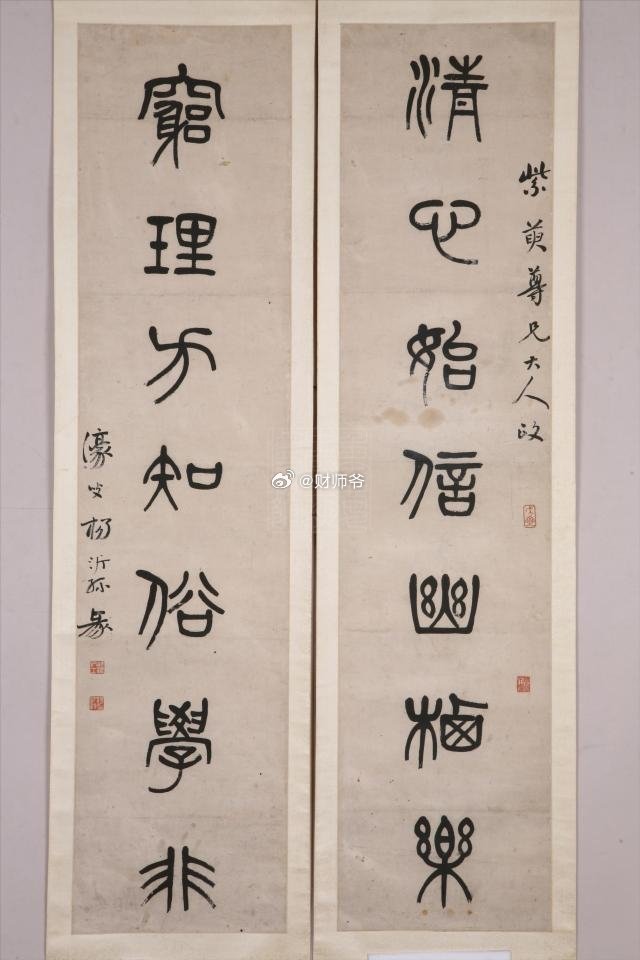 紫萸尊兄大人政
清心始信幽栖樂
窮理方知俗學非
濠叟楊沂孫篆
@财师爷